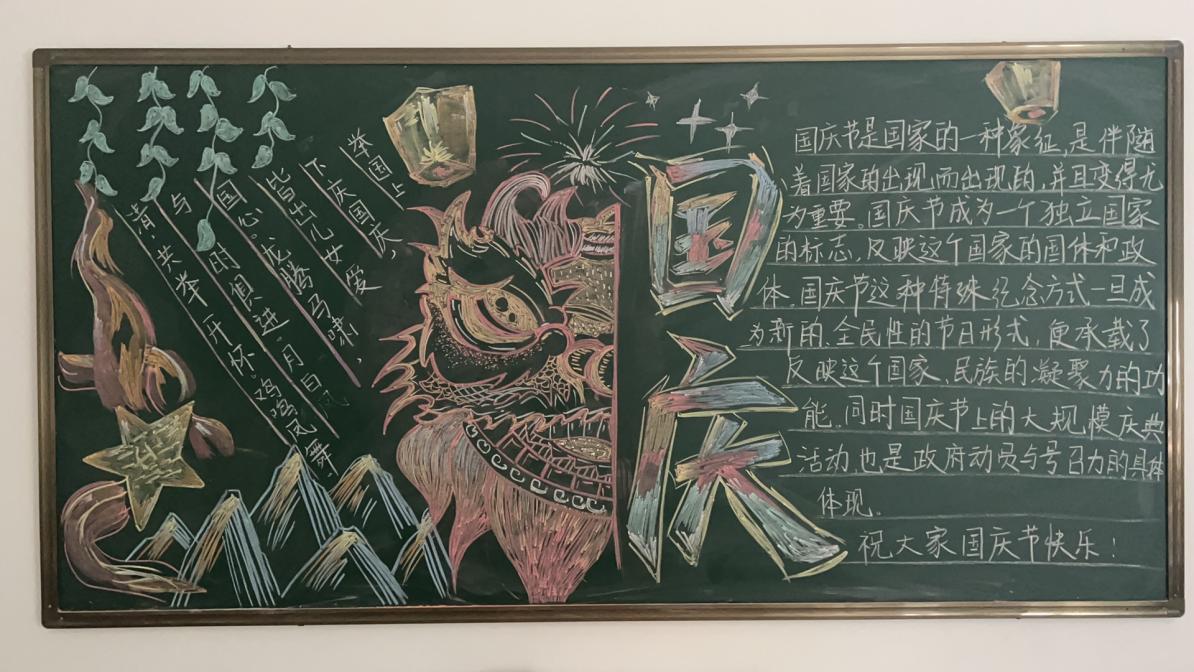 举国上
下庆国庆，
皆出儿女爱
国心.龙腾马啸，
与时俱进.月白风
清.共举开怀.鸡鸣凤舞.
国庆
国庆节是国家的一种象征,是伴随
着国家的出现,而出现的,并且变得尤
为重要.国庆节成为一个独立国家
的标志,反映这个国家的国体和政
体.国庆节这种特殊纪念方式一旦成
为新的.全民性的节日形式,便承载了
反映这个国家.民族的凝聚力的功
能.同时国庆节上的大规模庆典
活动,也是政府动员与号召力的具体
体现.
祝大家国庆节快乐!